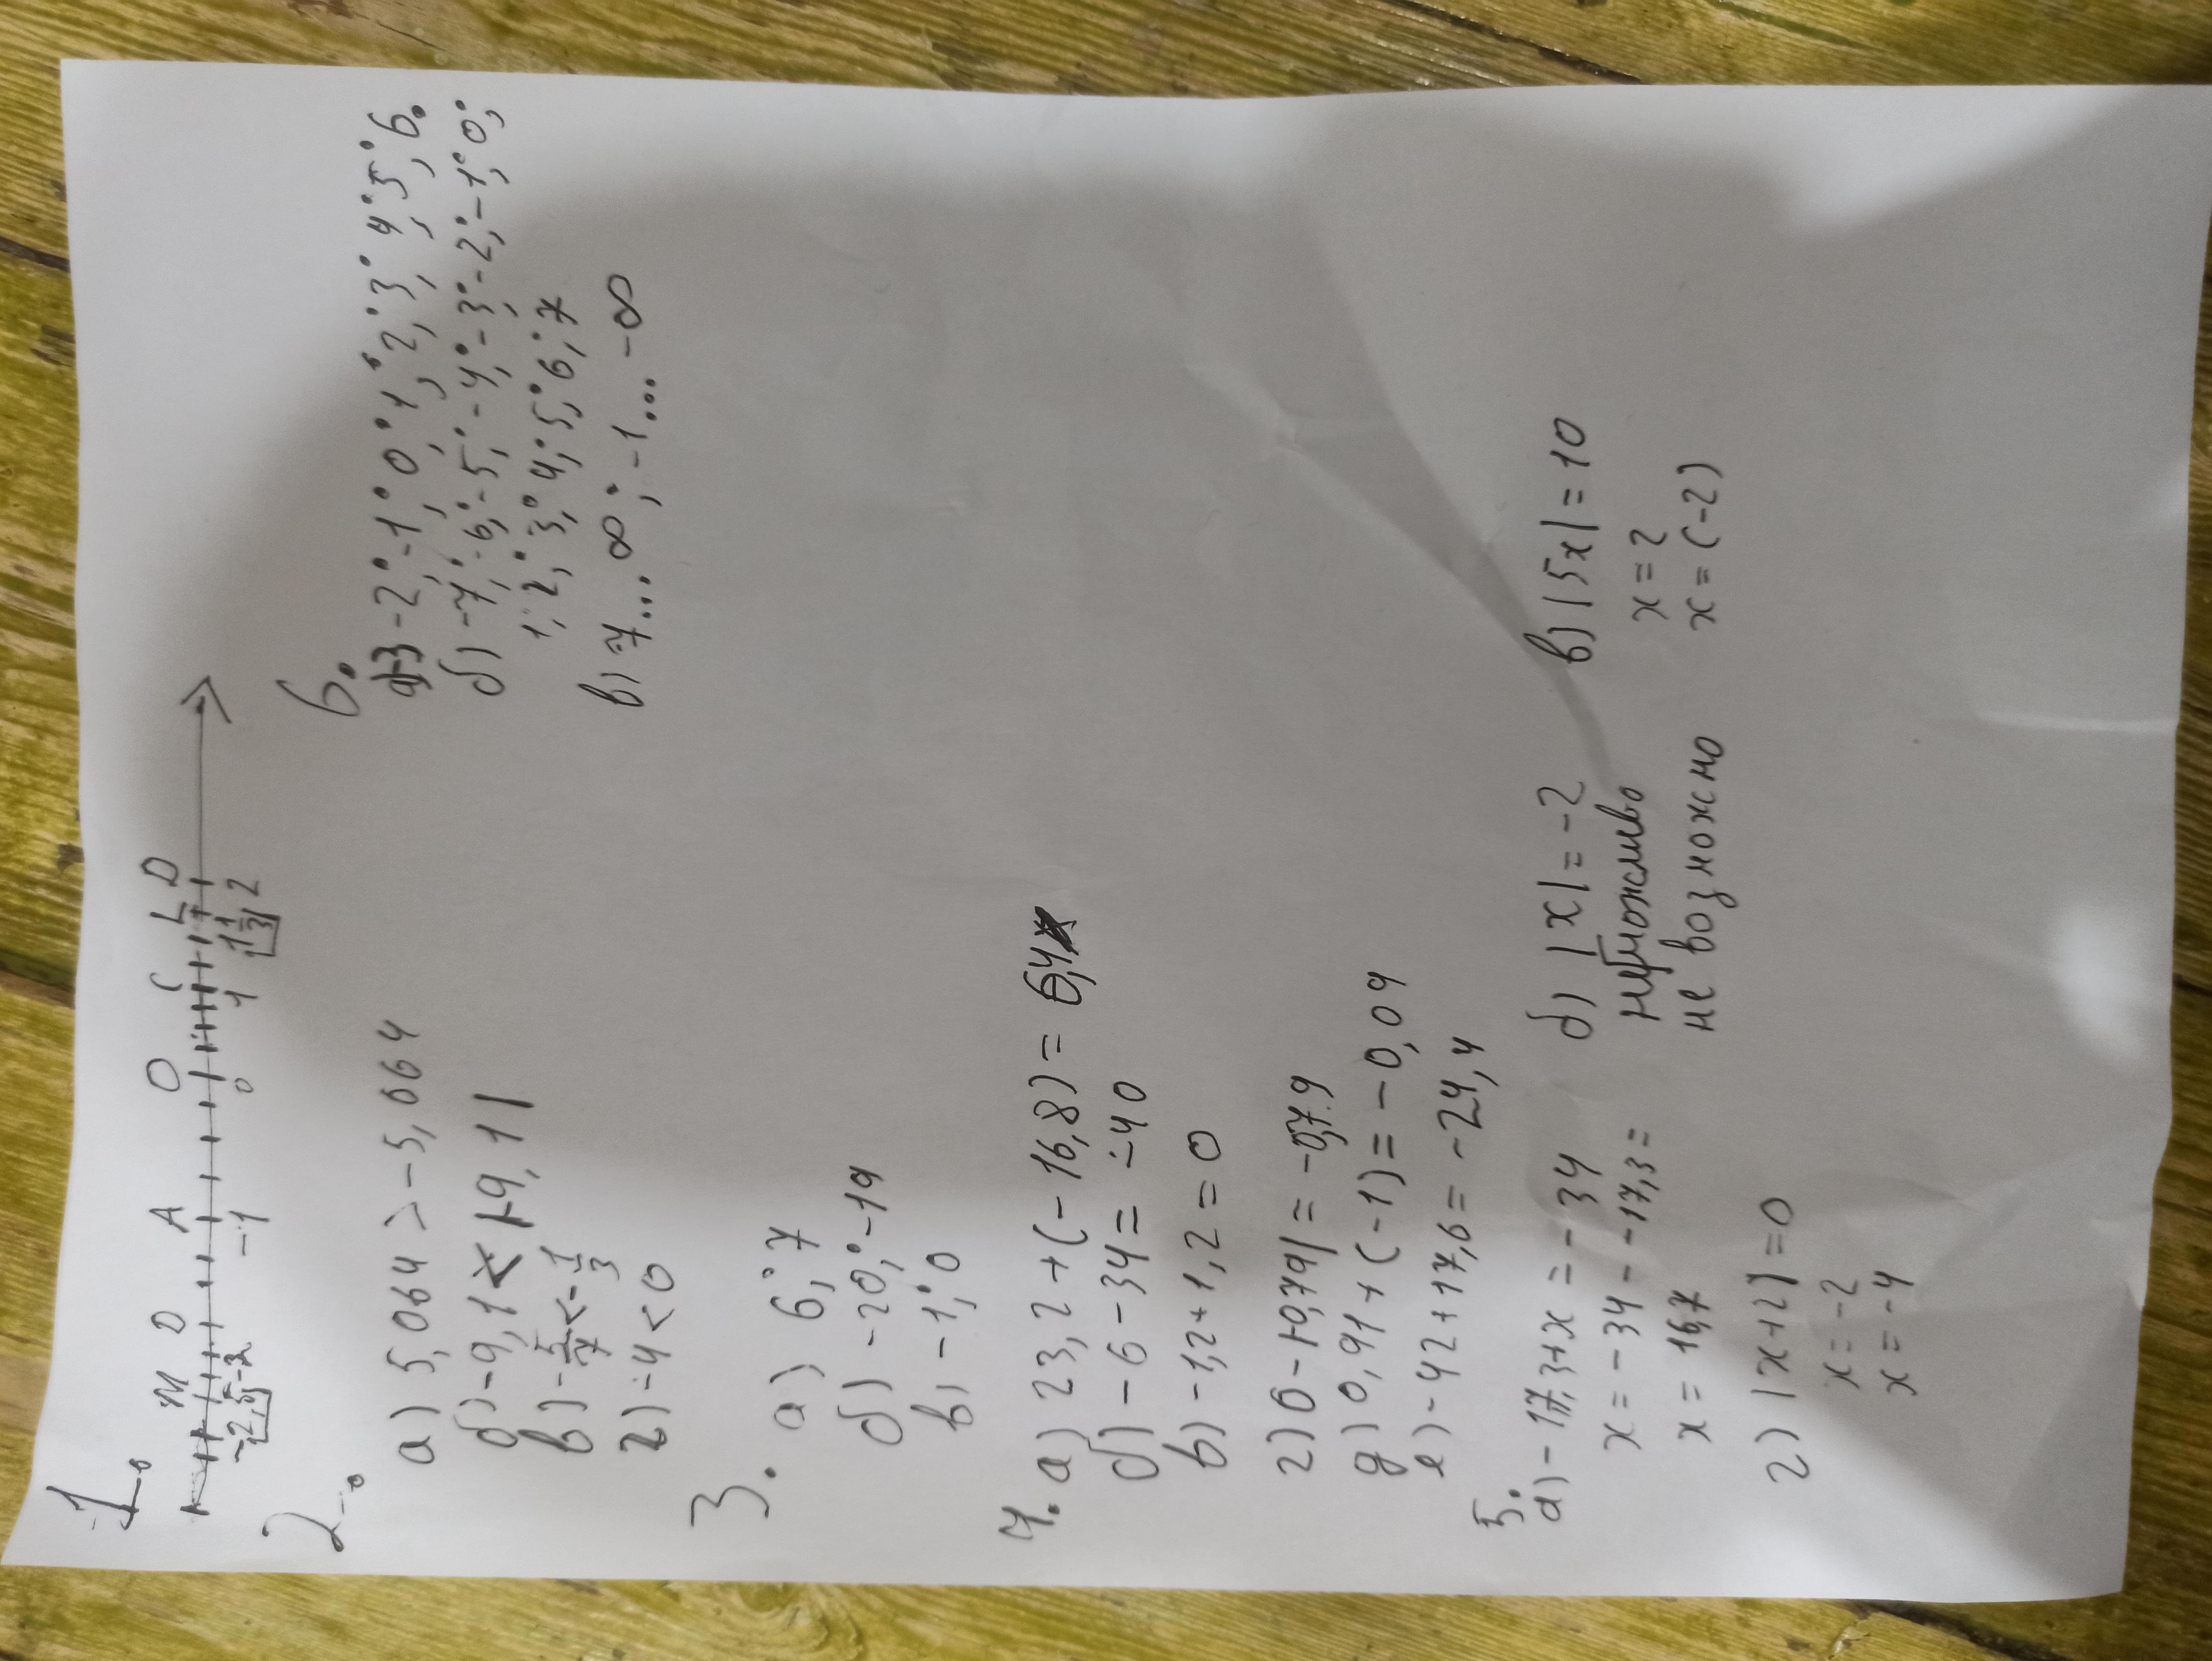 1.
M D A O C L D
-2,5 -2 -1 0 1 1 1/3 2
2.
а) 5,064 > -5,064
б) -9,1 < 19,11
в) -5/7 < -1/3
г) -4 < 0
3. а) 6; 7
б) -20; -19
в) -1; 0
4. а) 23,2 + (-16,8) = 6,4
б) -6 - 34 = -40
в) -1,2 + 1,2 = 0
г) 0 - |-0,79| = -0,79
д) 0,91 + (-1) = -0,09
е) -42 + 17,6 = -24,4
5.
а) -17,3 + x = -34
x = -34 - -17,3 =
x = 16,7
б) |x| = -2
не возможно
в) |5x| = 10
x = 2
x = (-2)
г) |x+2| = 0
x = -2
x = -4
6.
а) -3 -2; -1; 0; 1; 2; 3; 4; 5; 6.
б) -7; -6; -5; -4; -3; -2; -1; 0;
1; 2; 3; 4; 5; 6; 7
в) 7... ∞; -1... -∞